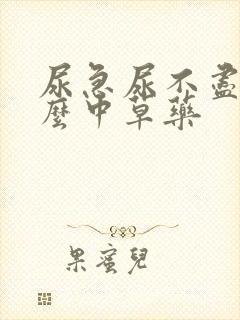 尿急尿不盡
麼中草藥
果蜜兒